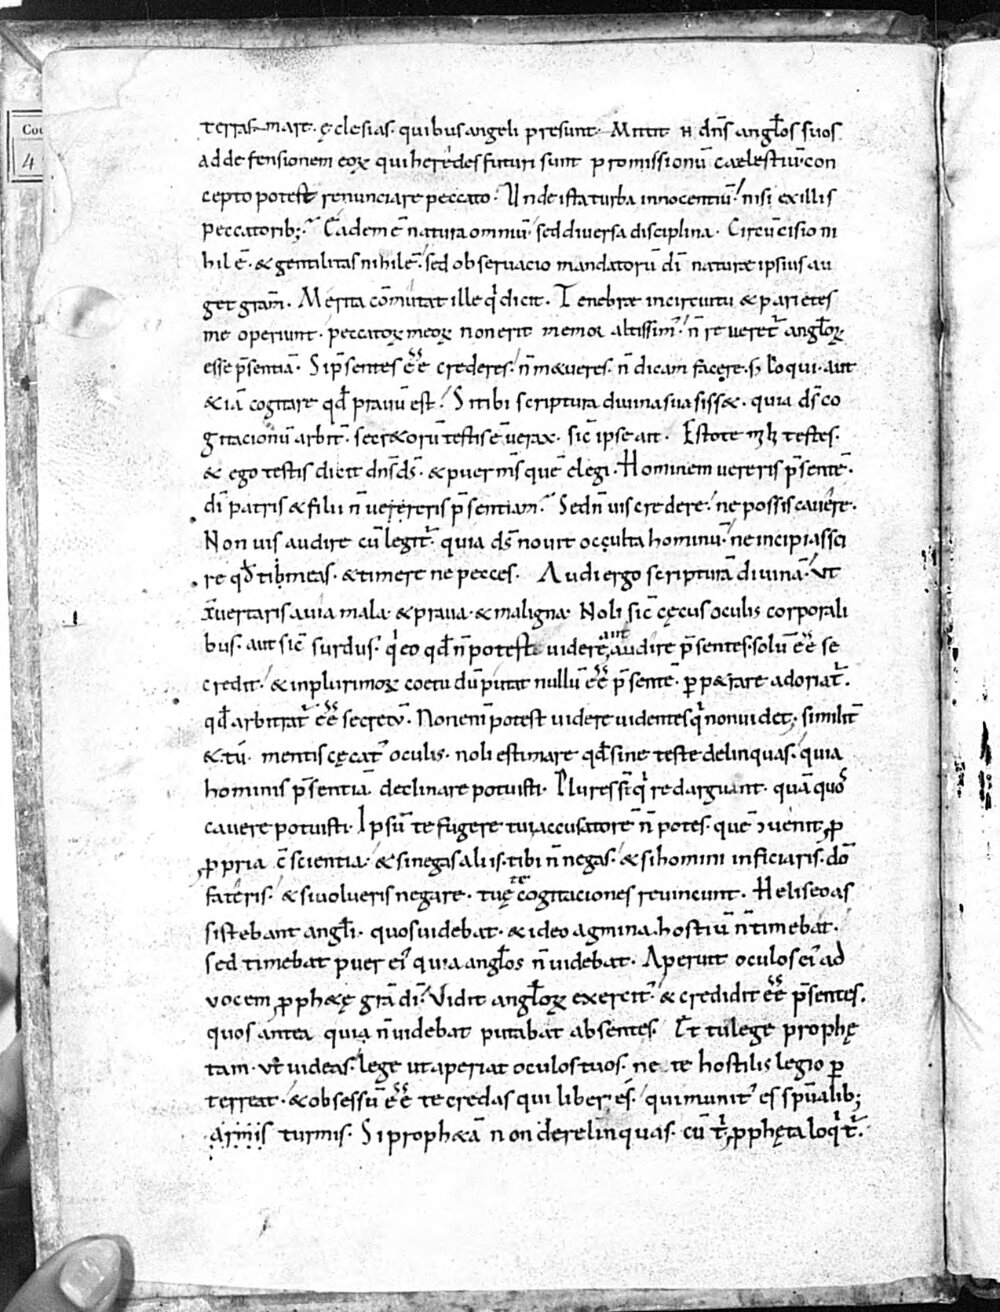 terras mare. ęclesias. quibus angeli presunt. Mittit n̄ dn̄s angłos suos
ad defensionem eoꝝ qui heredes futuri sunt promissionū cælestiū. con
cepto potest renunciare peccato. Unde ista turba innocentiū. nisi ex illis
peccatorib; Eadem ē natura omniū. sed diversa disciplina. Circūcisio ni
hil ē. & gentilitas nihil ē. sed observacio mandatorū dī naturæ ipsius au
get grām. Merita cōmutat ille qͥ dicit. Tenebræ in circuitu & parietes
me operiunt. peccatoꝝ meoꝝ non erit memor altissimꝰ. n̄ reveretᷣ angłoꝝ
esse p̄sentiā. Si p̄sentes ee͞ crederes. n̄ m&ueres. n̄ dicam facere. ꝫ loqui. aut
&iā cogitare qđ pravū est. Si tibi scriptura divina suasiss&. quia ds̄ co
gitacionū arbitᷣ. secr&orū testis ē verax. sic̄ ipse ait. Estote m̅ testes.
& ego testis dicit dn̄s ds̄. & puer ms̄ quē elegi. Hominem vereris p̄sentē.
dī patris & filii n̄ verereris p̄sentiam. Sed n̄ vis credere. ne possis cavere.
Non vis audire cū legitᷣ. quia ds̄ novit occulta hominū. ne incipias sci
re qđ tibi meas. & timere ne pecces. Audi ergo scripturā divinā. Ut
āvertaris a via mala. & prava. & maligna. Noli sic̄ cęcus oculis corporali
bus. aut sic̄ surdus. qͥ eo qđ n̄ potest videre aut audire p̄sentes. solū ee͞ se
credit. & in plurimoꝝ coetu dū putat nullū ee͞ p̄sentē. ꝑp&rare adoriatᷣ.
qđ arbitratᷣ ee͞ secretū. Non enī potest videre videntes qͥ non videt. similitᷣ
& tu. mentis cęcatꝰ oculis. noli estimare qđ sine teste delinquas. quia
hominis p̄sentiā declinare potuisti. Plures s̄t qͥ redarguant. quā quos
cavere potuisti. Ipsū te fugere tui accusatorē n̄ potes. quē ɔvenit ꝓ
ꝓpria c̄scientia. & si negas aliis. tibi n̄ negas. & si homini inficiaris. dō
fateris. & si volueris negare. tuę te cogitaciones revincunt. Heliseo as
sistebant angłi. quos videbat. & ideo agmina hostiū n̄ timebat.
sed timebat puer eiꝰ quia angłos n̄ videbat. Aperuit oculos eiꝰ ad
vocem ꝓph&ę grā dī. Vidit angłoꝝ exercitꝰ. & credidit ee͞ p̄sentes.
quos antea quia n̄ videbat putabat absentes. Et tu lege prophę
tam. ut videas. lege ut aperiat oculos tuos. ne te hostilis legio ꝑ
terreat. & obsessū ee͞ te credas qui liber es. qui munitꝰ es spūalib;
armis turmis. Si proph&ā non derelinquas. cū tͬ ꝓphęta loqͥtᷣ.